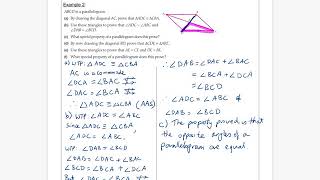 Example 2
ABCD is a parallelogram.
(a) By drawing the diagonal AC, prove that ΔADC ≡ ΔCBA.
(b) Use these triangles to prove that ∠ADC = ∠ABC
and ∠DAB = ∠BCD.
(c) What special property of a parallelogram does this prove?
(d) By now drawing the diagonal BD prove that
(e) Use these triangles to prove that AE = CE and
(f) What special property of a parallelogram does this prove?
a) WTP: ΔADC ≡ ΔCBA
AC is common
∠DCA = ∠BAC
∠DAC = ∠BCA
∴ ΔADC ≡ ΔCBA (AAS)
b) WTP: ∠ADC = ∠ABC
Since ΔADC ≡ ΔCBA,
∠ADC = ∠ABC.
WTP: ∠DAB = ∠BCD
∠DAB = ∠DAC + ∠BAC
∠BCD = ∠DCA + ∠BCA
But ∠DAC =
∴ ∠DAB = ∠DAC + ∠BAC
= ∠BCA + ∠DCA
= ∠BCD
∴ ∠ADC = ∠ABC &
∠DAB = ∠BCD
c) The property proved is that
the opposite angles of a
parallelogram are equal.